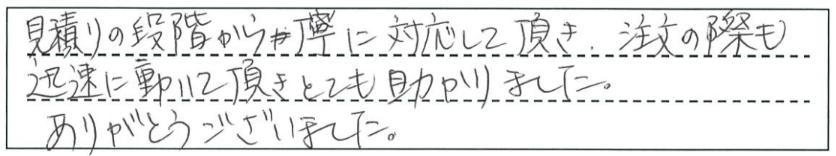 見積りの段階から丁寧に対応して頂き、注文の際も
迅速に動いて頂きとても助かりました。
ありがとうございました。